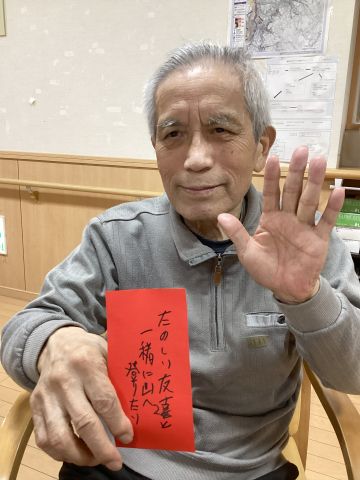 たのしい友達と
一緒に山へ
登りたい